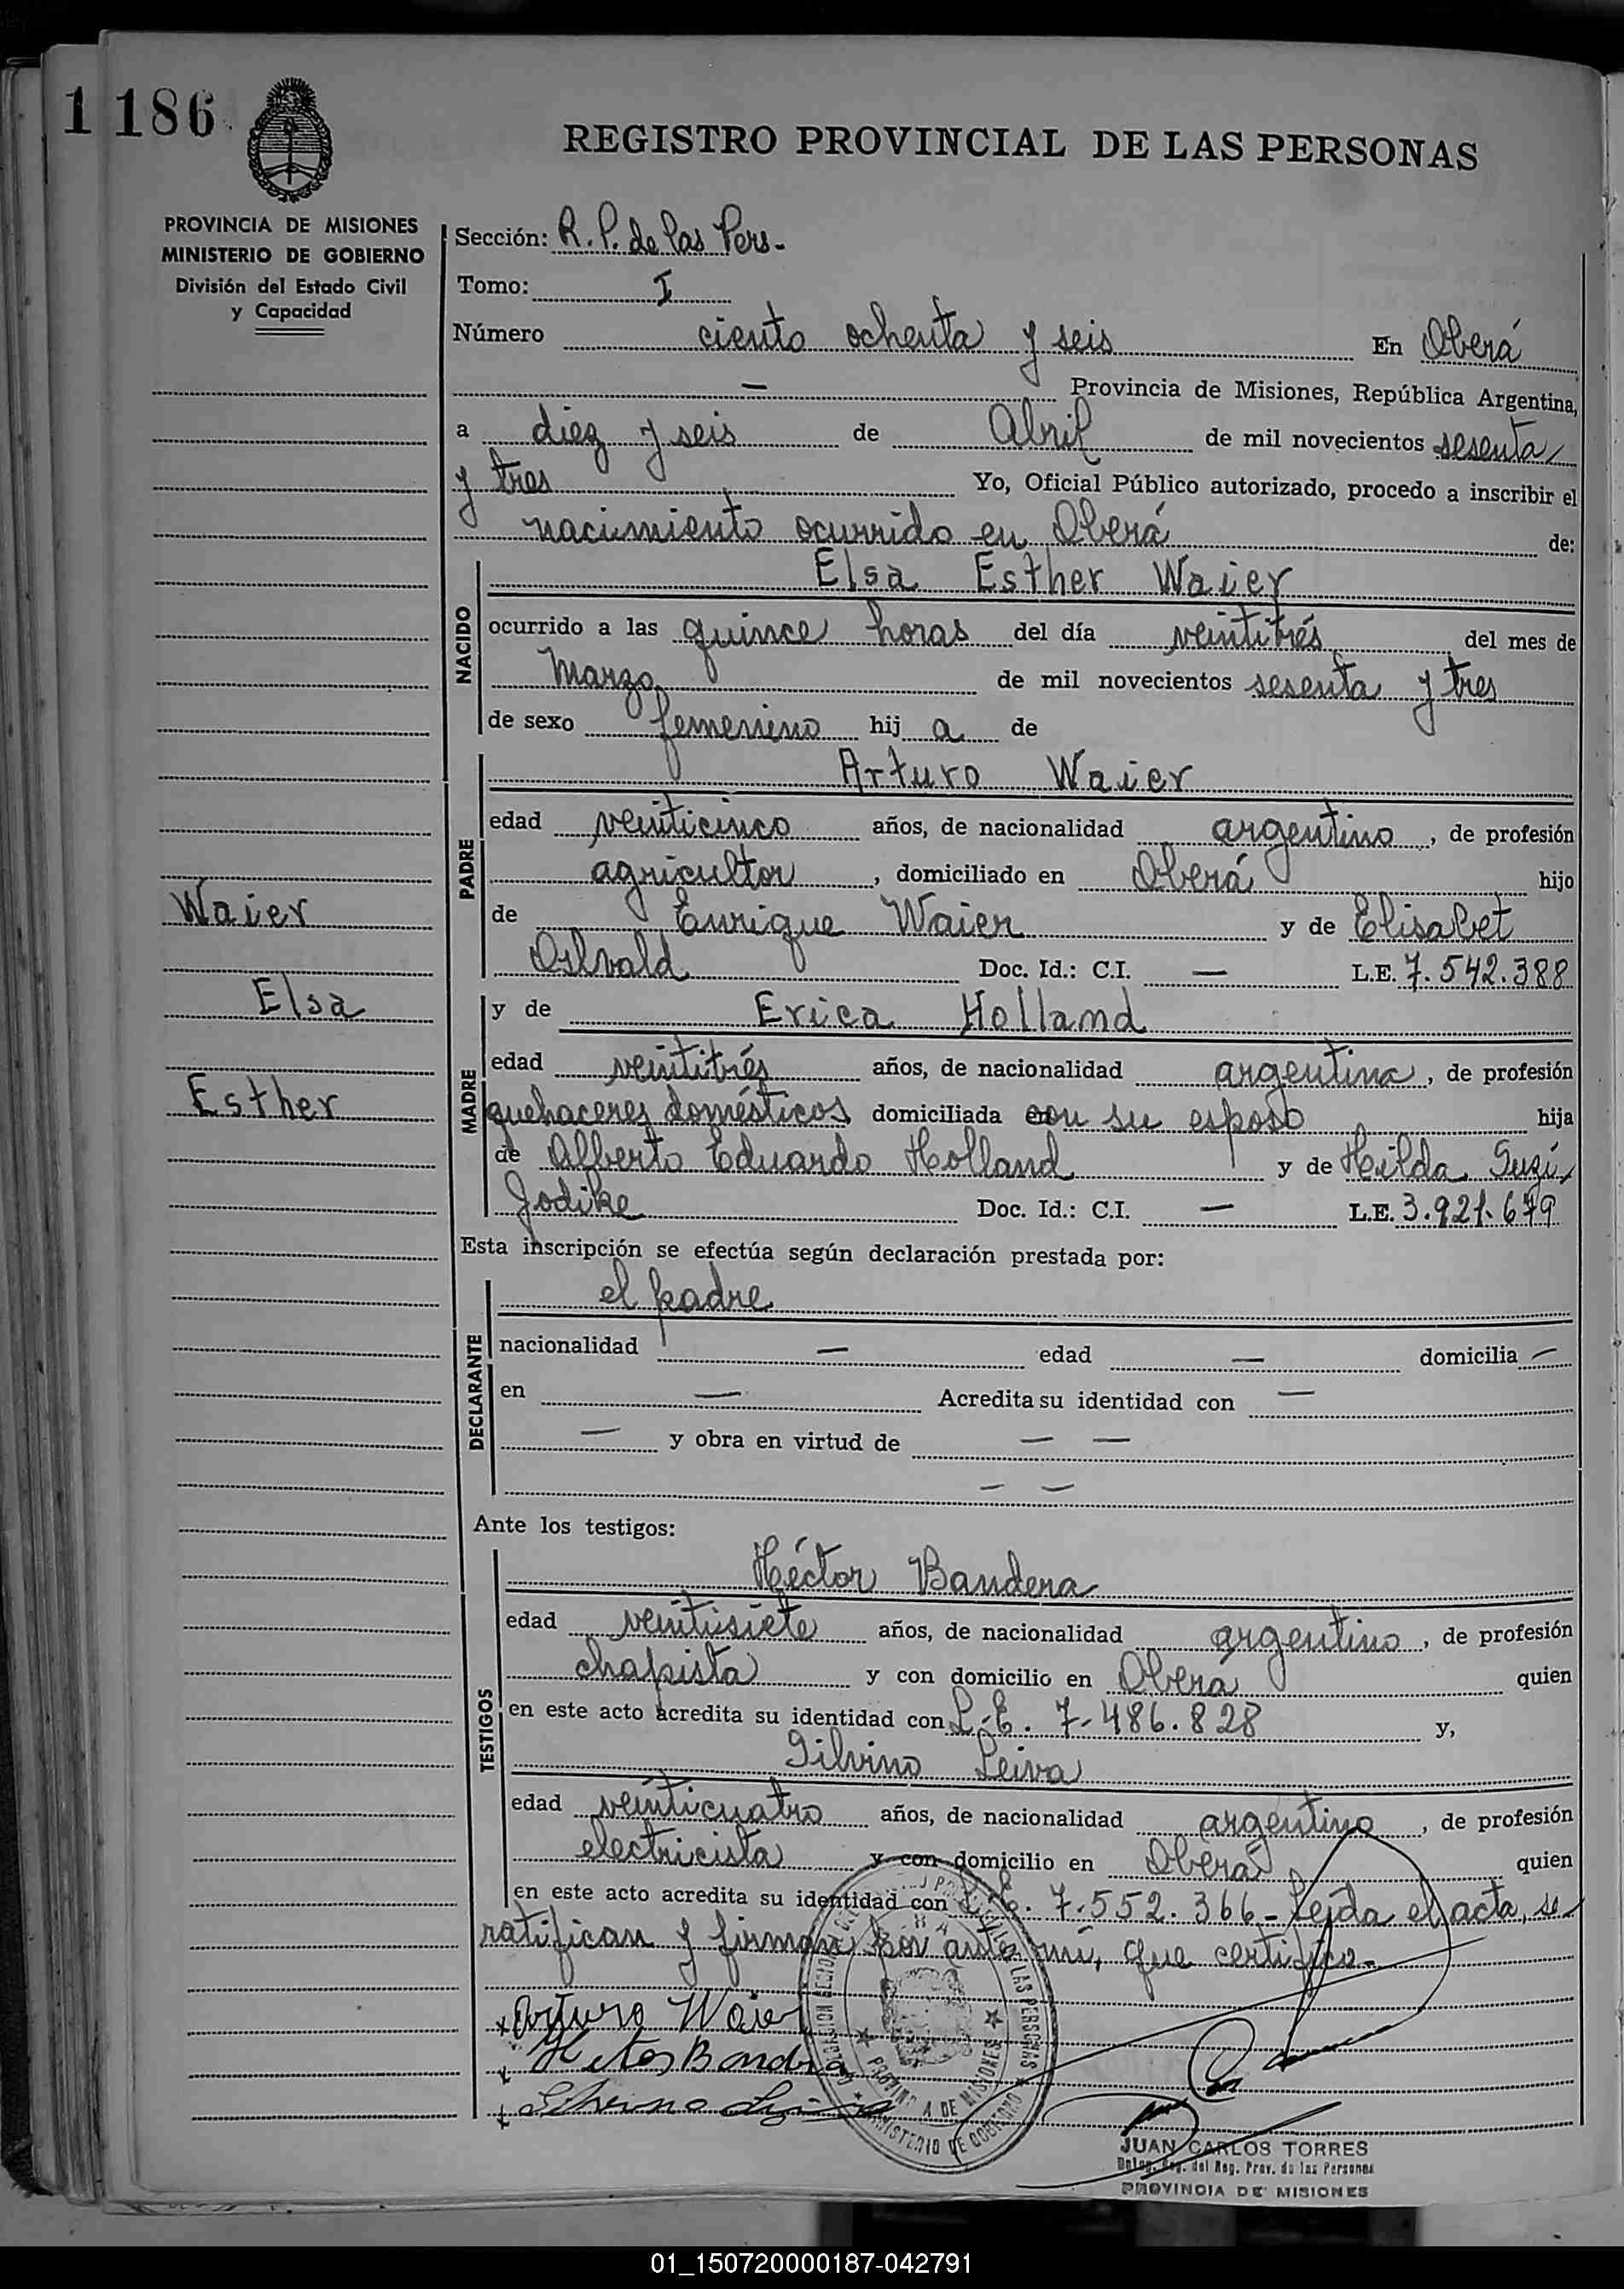 1 186
REGISTRO PROVINCIAL DE LAS PERSONAS
PROVINCIA DE MISIONES
MINISTERIO DE GOBIERNO
División del Estado Civil
y Capacidad
Sección: R. P. de las Pers.
Tomo: I
Número ciento ochenta y seis En Oberá
— Provincia de Misiones, República Argentina,
a diez y seis de Abril de mil novecientos sesenta
y tres Yo, Oficial Público autorizado, procedo a inscribir el
nacimiento ocurrido en Oberá de:
NACIDO
Elsa Esther Waier
ocurrido a las quince horas del día veintitrés del mes de
Marzo de mil novecientos sesenta y tres
de sexo femenino hij a de
PADRE
Arturo Waier
edad veinticinco años, de nacionalidad argentino, de profesión
agricultor, domiciliado en Oberá hijo
de Enrique Waier y de Elisabet
Osvald Doc. Id.: C.I. — L.E. 7.542.388
Waier
Elsa
Esther
MADRE
y de Erica Holland
edad veintitrés años, de nacionalidad argentina, de profesión
quehaceres domésticos domiciliada con su esposo hija
de Alberto Eduardo Holland y de Hilda Suzi
Jodike Doc. Id.: C.I. — L.E. 3.921.679
Esta inscripción se efectúa según declaración prestada por:
DECLARANTE
el padre
nacionalidad — edad — domicilia —
en — Acredita su identidad con —
— y obra en virtud de — —
— —
Ante los testigos:
TESTIGOS
Héctor Bandera
edad veintisiete años, de nacionalidad argentino, de profesión
chapista y con domicilio en Oberá quien
en este acto acredita su identidad con L.E. 7.486.828 y,
Silvino Leiva
edad veinticuatro años, de nacionalidad argentino, de profesión
electricista y con domicilio en Oberá quien
en este acto acredita su identidad con L.E. 7.552.366 - Leída el acta, se
ratifican y firman por ante mí, que certifico.
x Arturo Waier
x
x
PROVINCIA DE MISIONES
MINISTERIO DE GOBIERNO
JUAN CARLOS TORRES
del Reg. Prov. de las Personas
PROVINCIA DE MISIONES
01_150720000187-042791